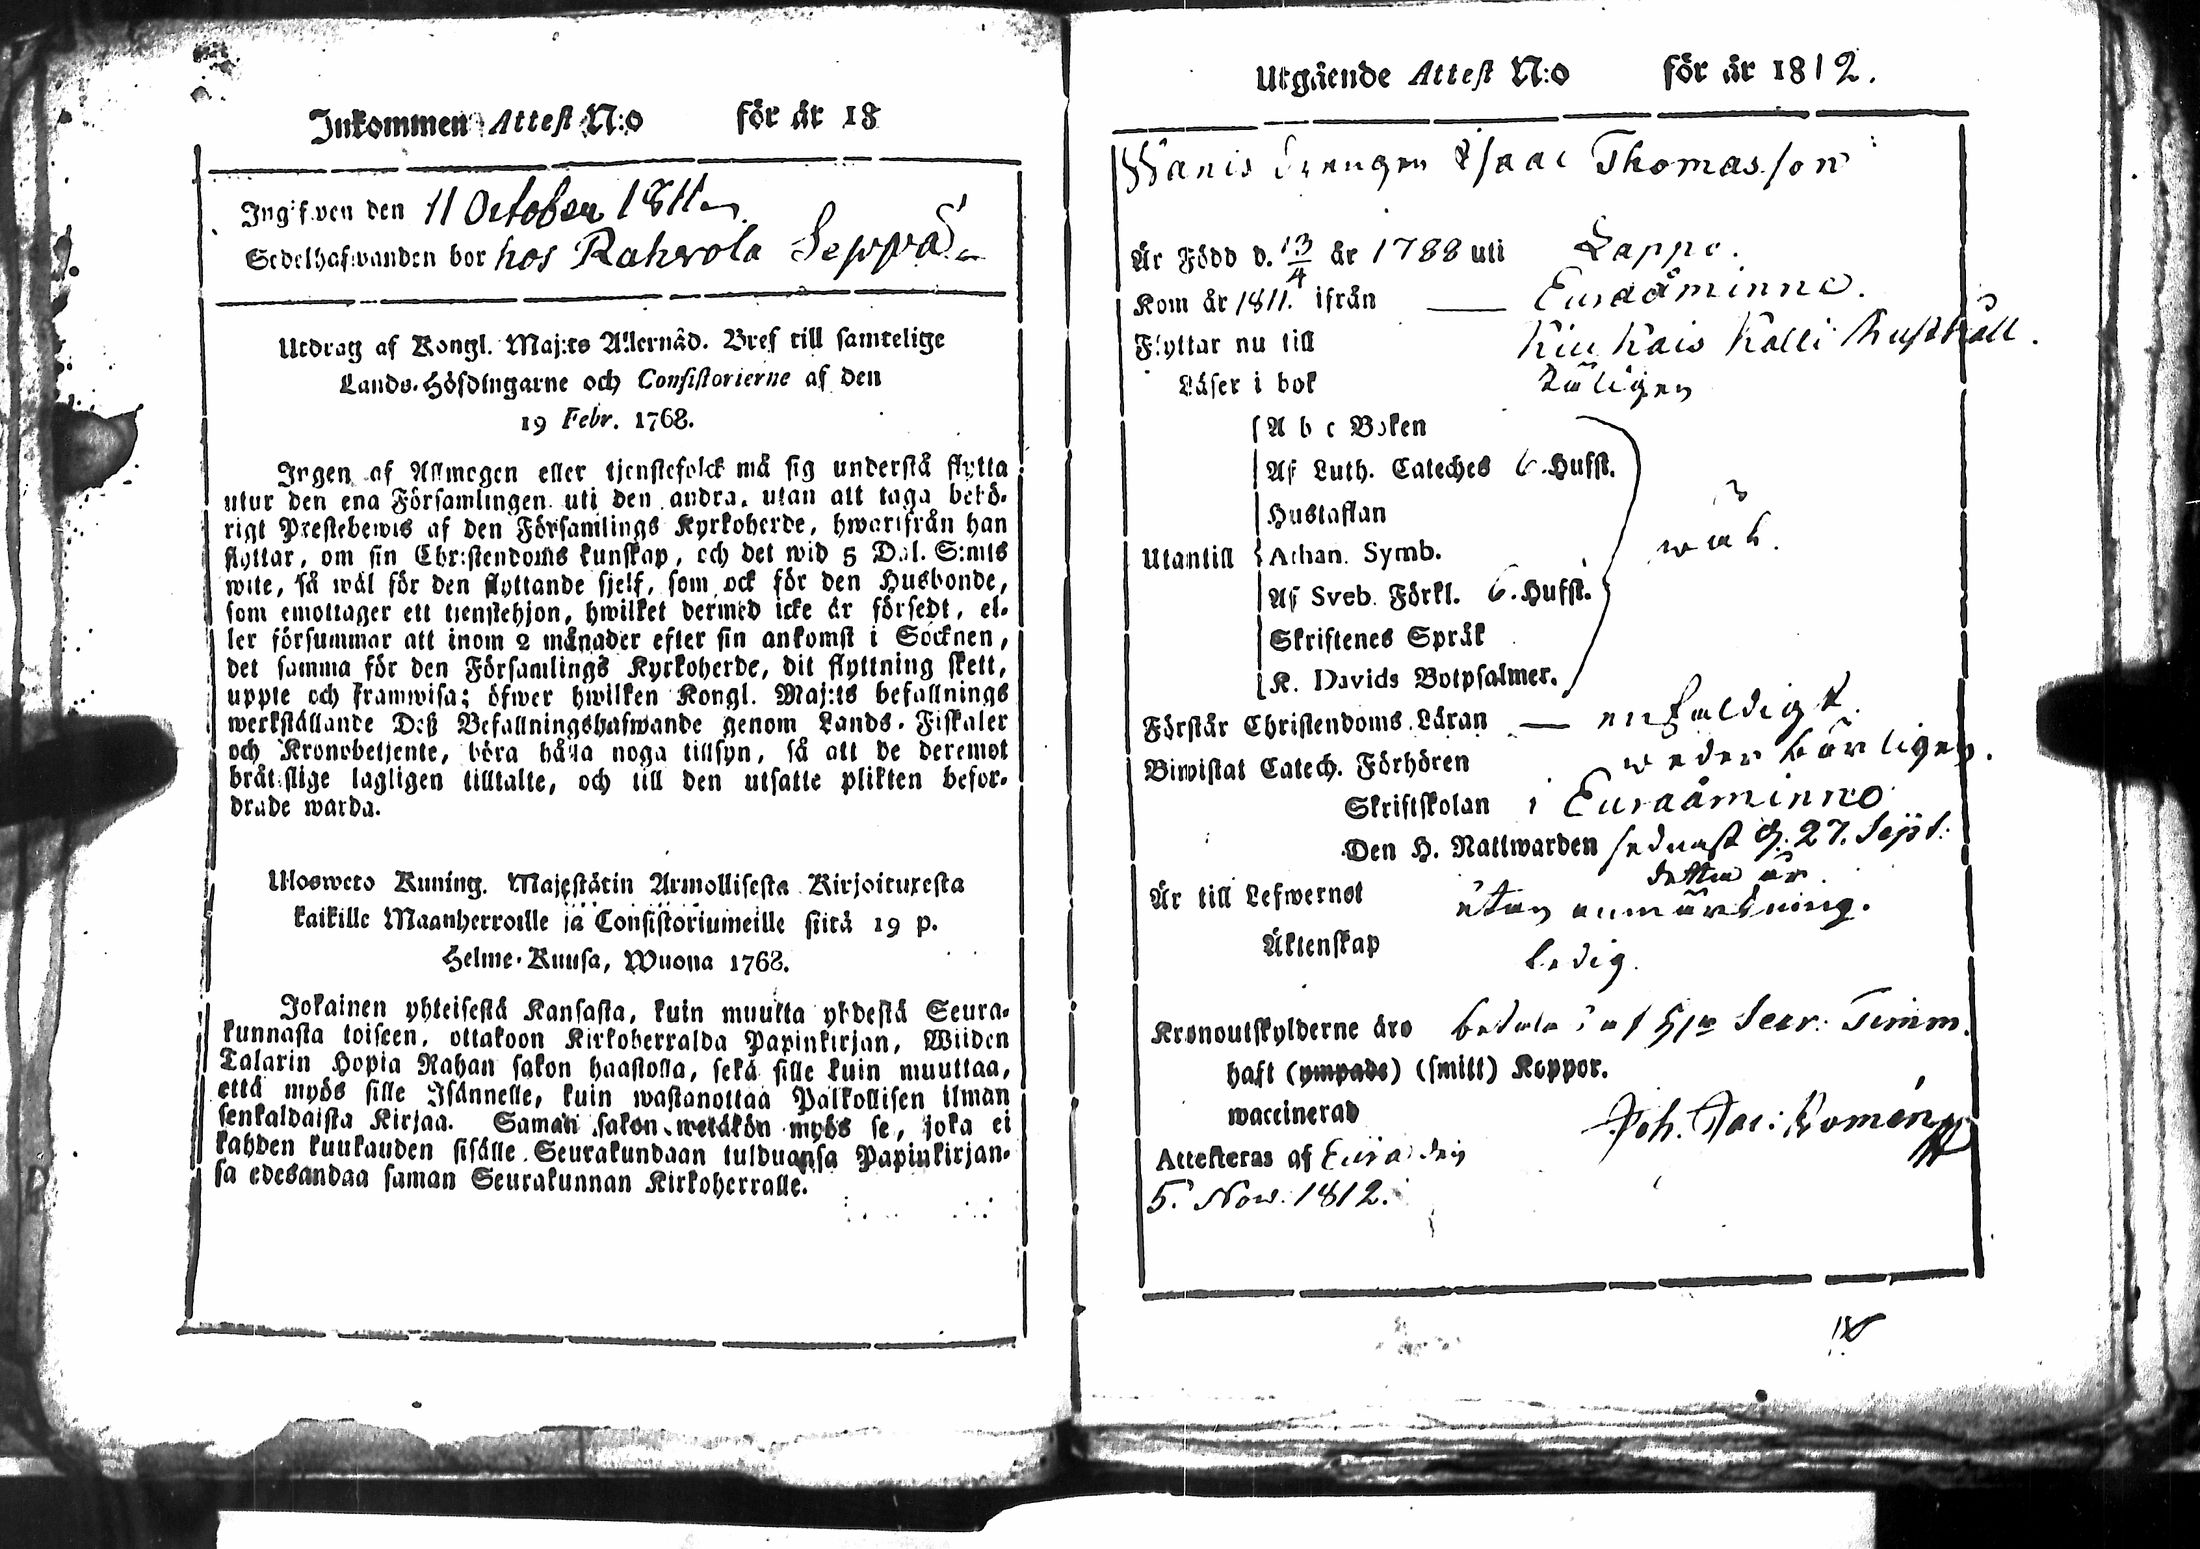 Inkommen Attest N:o för år 18
Ingifven den 11 October 1811
Sedelhafwanden bor hos Rahwola Seppä
Utdrag af Kongl. Maj:ts Allernåd. Bref till samtelige
Lands-Höfdingarne och Consistorierne af den
19 Febr. 1768.
Ingen af Allmogen eller tjenstefolck må sig understå flytta
utur den ena Församlingen uti den andra, utan att taga behö-
rigt Prestebewis af den Församlings Kyrkoherde, hwarifrån han
flyttar, om sin Christendoms kunskap, och det wid 5 Dal. S:mts
wite, så wäl för den flyttande sjelf, som ock för den Husbonde,
som emottager ett tienstehjon, hwilket dermed icke är försedt, el-
ler försummar att inom 2 månader efter sin ankomst i Socknen,
det samma för den Församlings Kyrkoherde, dit flyttning skett,
uppte och framwisa; öfwer hwilken Kongl. Maj:ts befallnings
werkställande Deß Befallningshafwande genom Lands-Fiskaler
och Kronobetjente, böra hålla noga tillsyn, så att de deremot
bråtslige lagligen tilltalte, och till den utsatte plikten befor-
drade warda.
Ulosweto Kuning. Majestätin Armollisesta Kirjoituxesta
kaikille Maanherroille ja Consistoriumeille siitä 19 p.
Helme-Kuusa, Wuona 1768.
Jokainen yhteisestä Kansasta, kuin muutta yhdestä Seura-
kunnasta toiseen, ottakoon Kirkoherralda Papinkirjan, Wiiden
Talarin Hopia Rahan sakon haastolla, sekä sille kuin muuttaa,
että myös sille Isännelle, kuin wastanottaa Palkollisen ilman
senkaldaista Kirjaa. Saman sakon wetäkön myös se, joka ei
kahden kuukauden sisälle Seurakundaan tulduansa Papinkirjan-
sa edesandaa saman Seurakunnan Kirkoherralle.
Utgående Attest N:o för år 1812.
Wanis Drengen Isaac Thomasson
Är Född d. 13/4 år 1788 uti Lappo.
Kom år 1811. ifrån — Euraåminne.
Flyttar nu till Kiukais Kalli Rusthåll.
Läser i bok
A b c Boken
Af Luth. Cateches 6. Hufst.
Hustaflan
Utantill Athan. Symb.
Af Sveb. Förkl. 6. Hufst.
Skriftenes Språk
K. Davids Botpsalmer.
Förstår Christendoms Läran — enfaldigt.
Biwistat Catech. Förhören wederbörligen.
Skriftskolan i Euraåminne
Den H. Nattwarden sednast d. 27. Sept.
detta år.
Är till Lefwernet utan anmärkning.
Äktenskap ledig.
Kronoutskylderne äro
haft (ympade) (smitt) Koppor.
waccinerad
Attesteras af Eura den
5. Nov. 1812.